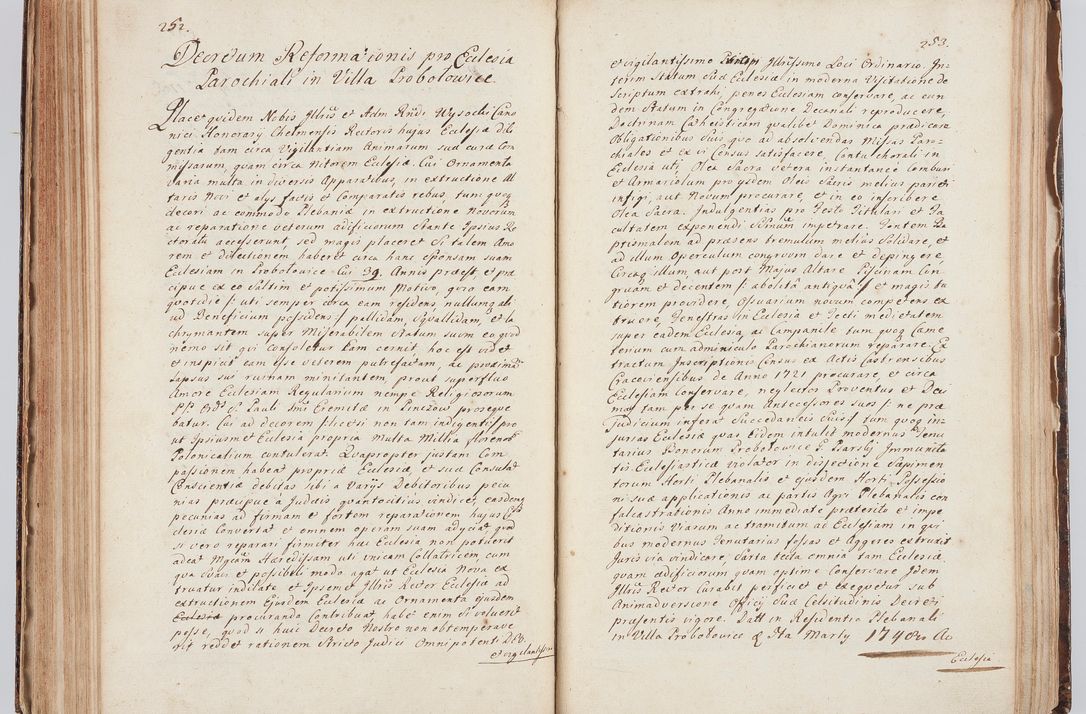 252.
Decretum Reformationis pro Ecclesia
Parochiali in Villa Probolowice
Placet quidem Nobis Illris et Adm Rndi Wysocki Cano
nici Honorarij Chelmensis Rectoris hujus Ecclesiæ dili
gentia tam circa Vigilantiam Animarum suæ curæ Com
missarum, quam circa Nitorem Ecclesiæ. Cui Ornamenta
varia multa in diversis Apparatibus, in extructione Al
taris Novi et alys factis et Comparatis rebus, tum quoq
decori ac commodo Plebaniæ in extructione Novorum
ac reparatione veterum ædificiorum stante Ipsius Re
ctoratu accesserunt, sed magis placeret Si talem Amo
rem et dilectionem haberet circa hanc sponsam suam
Ecclesiam in Probolowice Cui 39. Annis præest, et præ
cipue ex eo Saltim et potissimum Motivo, quo eam
quotidie /: uti semper circa eam residens nullumq ali
ud Beneficium possidens :/ pallidam, Squallidam, et la
chrymantem super Miserabilem Statum suum eo quod
nemo sit qui consoletur Eam cernit, hoc est videt
et inspicit eam esse veterem putrefactam, ac proximæ
lapsus sui ruinam minitantem, prout superfluo
Amore Ecclesiam Regularium nempe Religiosorum
PP Ord: S. Pauli Imi Eremitæ in Pinczow proseque
batur. Cui ad decorem /:licet:/ non tam indigentis pro
ut Ipsiusmet Ecclesia propria Multa Millia florenos
Polonicalium contulerat. Quapropter justam Com
passionem habeat propriæ Ecclesiæ, et suæ Consulat
Conscientiæ debitas sibi a Varijs Debitoribus pecu
nias præcipue à Judæis quantocitius vindicet, easdemq
pecunias ad firmam et fortem reparationem hujus Ec
clesiæ Convertat et omnem operam suam adyciat quod
si vero reparari firmiter hæc Ecclesia non potuerit
adeat Mgcam Hæredissam uti unicam Collatricem cum
qua suavi et possibili modo agat ut Ecclesia Nova ex
truatur indilate et Ipsemet Illris Rector Ecclesiæ ad
extructionem Ejusdem Ecclesiæ ac Ornamenta ejusdem
Ecclesiæ procuranda Contribuat habet enim Si voluerit
posse, quod si huic Decreto Nostro non obtemperave
rit reddet rationem Stricto Judici Omnipotenti DEO.
et vigilantissimo
253.
et vigilantissimo Illrissimo Loci Ordinario. In
terim Statum suæ Ecclesiæ in moderna Visitatione de
scriptum extrahi, penes Ecclesiam conservare, ac eun
dem Statum in Congregatione Decanali reproducere,
Doctrinam Catheisticam qualibet Dominica prædicare
Obligationibus Suis quo ad absolvendas Missas Paro=
chiales et ex vi Census satisfacere, Cantu chorali in
Ecclesia uti, Olea Sacra vetera instantanee comburi
et Armariolum pro ijsdem Oleis Sacris melius parieti
infigi, aut Novum procurare, et in eo inscribere
Olea Sacra. Indulgentias pro Festo Titulari et Fa
cultatem exponendi Ssmum impetrare. Fontem Ba
ptismalem ad præsens tremulum melius Solidare, et
ad illum Operculum congruum dare et depingere,
Circaq illum, aut post Majus Altare Piscinam Con
gruam et decentem /: abolita antiqua :/ et magis tu
tiorem providere, Ossuarium novum competens ex
truere, Fenestras in Ecclesia et Tecti medietatem
super eadem Ecclesia, ac Campanile tum quoq Cæme
terium cum adminiculo Parochianorum reparare. Ex
tractum Inscriptionis Census ex Actis Castrensibus
Cracoviensibus de Anno 1721 procurare, et circa
Ecclesiam conservare, neglectos Proventus et Deci
mas tam per se quam Antecessores suos /: ne præ
judicium inferat Succedaneis Suis :/ tum quoq in=
jurias Ecclesiæ quas Eidem intulit modernus Tenu
tarius Bonorum Probolowice G. Psarski Immunita
tis Ecclesiasticæ Violator in disjectione Sæpimen
torum Horti Plebanalis et ejusdem Horti Possessio
ni suæ applicationis ac partis Agri Plebanalis con
falcastrationis Anno immediate præterito et impe
ditionis Viarum ac tramitum ad Ecclesiam in qui
bus modernus Tenutarius fossas et Aggeres extruxit
Juris via vindicare, Sarta tecta omnia tam Ecclesiæ
quam ædificiorum quam optime Conservare Idem
Illris Rector Curabit perficiet et exequetur sub
Animadversione Officy Suæ Celsitudinis Decreti
præsentis vigore. Datt in Residentia Plebanali
in Villa Probolowice Marty 1748vo Ao
Ecclesia